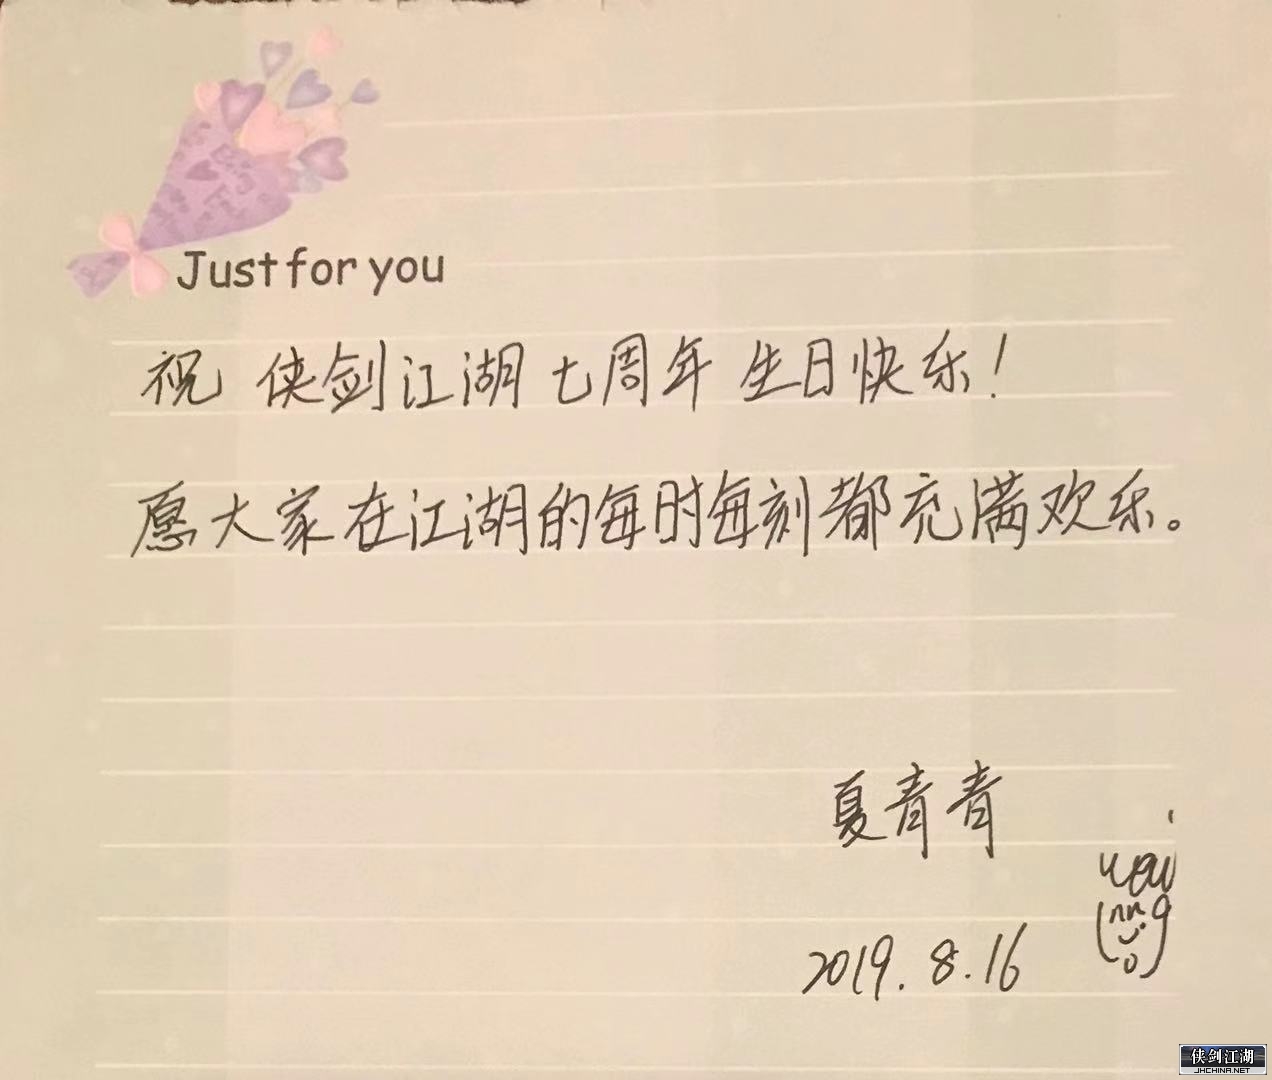 Just for you
祝 侠剑江湖 七周年 生日快乐！
愿大家在江湖的每时每刻都充满欢乐。
夏青青
2019.8.16
侠剑江湖
JHCHINA.NET